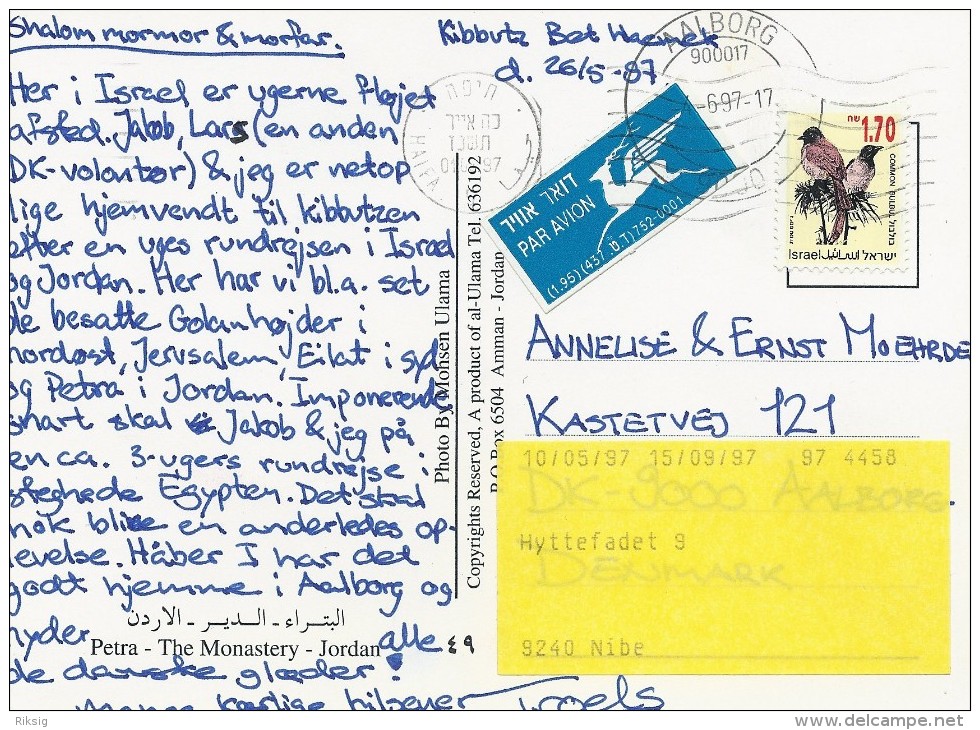 Shalom mormor & morfar.
Kibbutz Bet Haemek
d. 26/5-97
Her i Israel er ugerne fløjet
afsted. Jakob, Lars (en anden
DK-volontør) & jeg er netop
lige hjemvendt til kibbutzen
efter en uges rundrejsen i Israel
og Jordan. Her har vi bl.a. set
de besatte Golanhøjder i
nordøst, Jerusalem, Eilat i syd
og Petra i Jordan. Imponerende
snart skal Jakob & jeg på
en ca. 3-ugers rundrejse i
steghede Egypten. Det skal
nok blive en anderledes op-
levelse. Håber I har det
godt hjemme i Aalborg og
nyder alle
de danske glæder!
Mange kærlige hilsener Troels
البتراء - الدير - الاردن
Petra - The Monastery - Jordan ٤٩
Photo By Mohsen Ulama
Copyrights Reserved, A product of al-Ulama Tel. 636192
P.O Box 6504 Amman - Jordan
חיפה
כה אייר
תשנז
97
HAIFA
דואר אוויר
PAR AVION
(1.95) (437 .ט.ד) 752-0001
AALBORG
900017
-6.97-17
1.70 שח
COMMON BULBUL בולבול
Israel اسرائيل ישראל
ANNELISE & ERNST MOEHRDE
KASTETVEJ 121
DK-9000 AALBORG.
DENMARK
10/05/97 15/09/97 97 4458
Hyttefadet 9
9240 Nibe
Riksig
www.delcampe.net